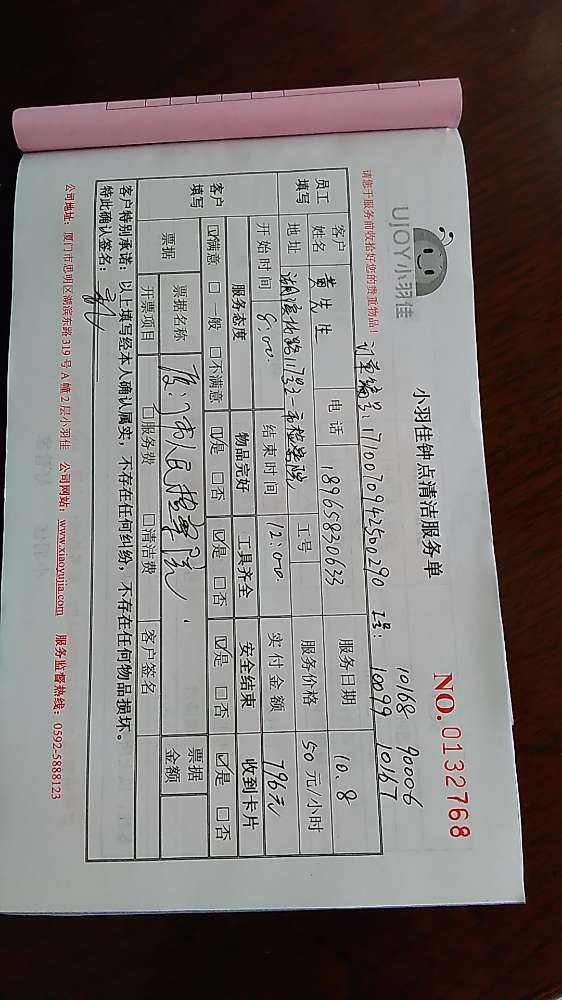 UJOY小羽佳
小羽佳钟点清洁服务单
NO. 0132768
请您于服务前收拾好您的贵重物品！
10168 90006
订单编号：171007094250290 工号：10099 10167
员工填写
客户姓名 黄先生 电话 18965830633 服务日期 10.8
地址 湖滨北路11732 市检察院 工号 服务价格 50元/小时
开始时间 8:00 结束时间 12:00 实付金额 796元
客户填写
服务态度 物品完好 工具齐全 安全结束 收到卡片
☑满意 □一般 □不满意 ☑是 □否 ☑是 □否 ☑是 □否 ☑是 □否
票据 票据名称 厦门市人民检察院 票据金额
开票项目 □服务费 □清洁费 客户签名
客户特别承诺：以上填写经本人确认属实，不存在任何纠纷，不存在任何物品损坏。
特此确认签名：
公司地址：厦门市思明区湖滨东路319号A幢2层小羽佳 公司网站：www.xiaoyujia.com 服务监督热线：0592-5888123